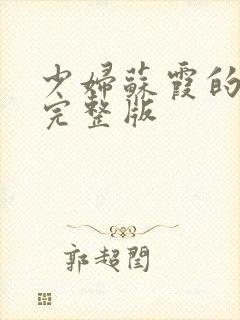 少婦蘇霞的
完整版
郭超閏